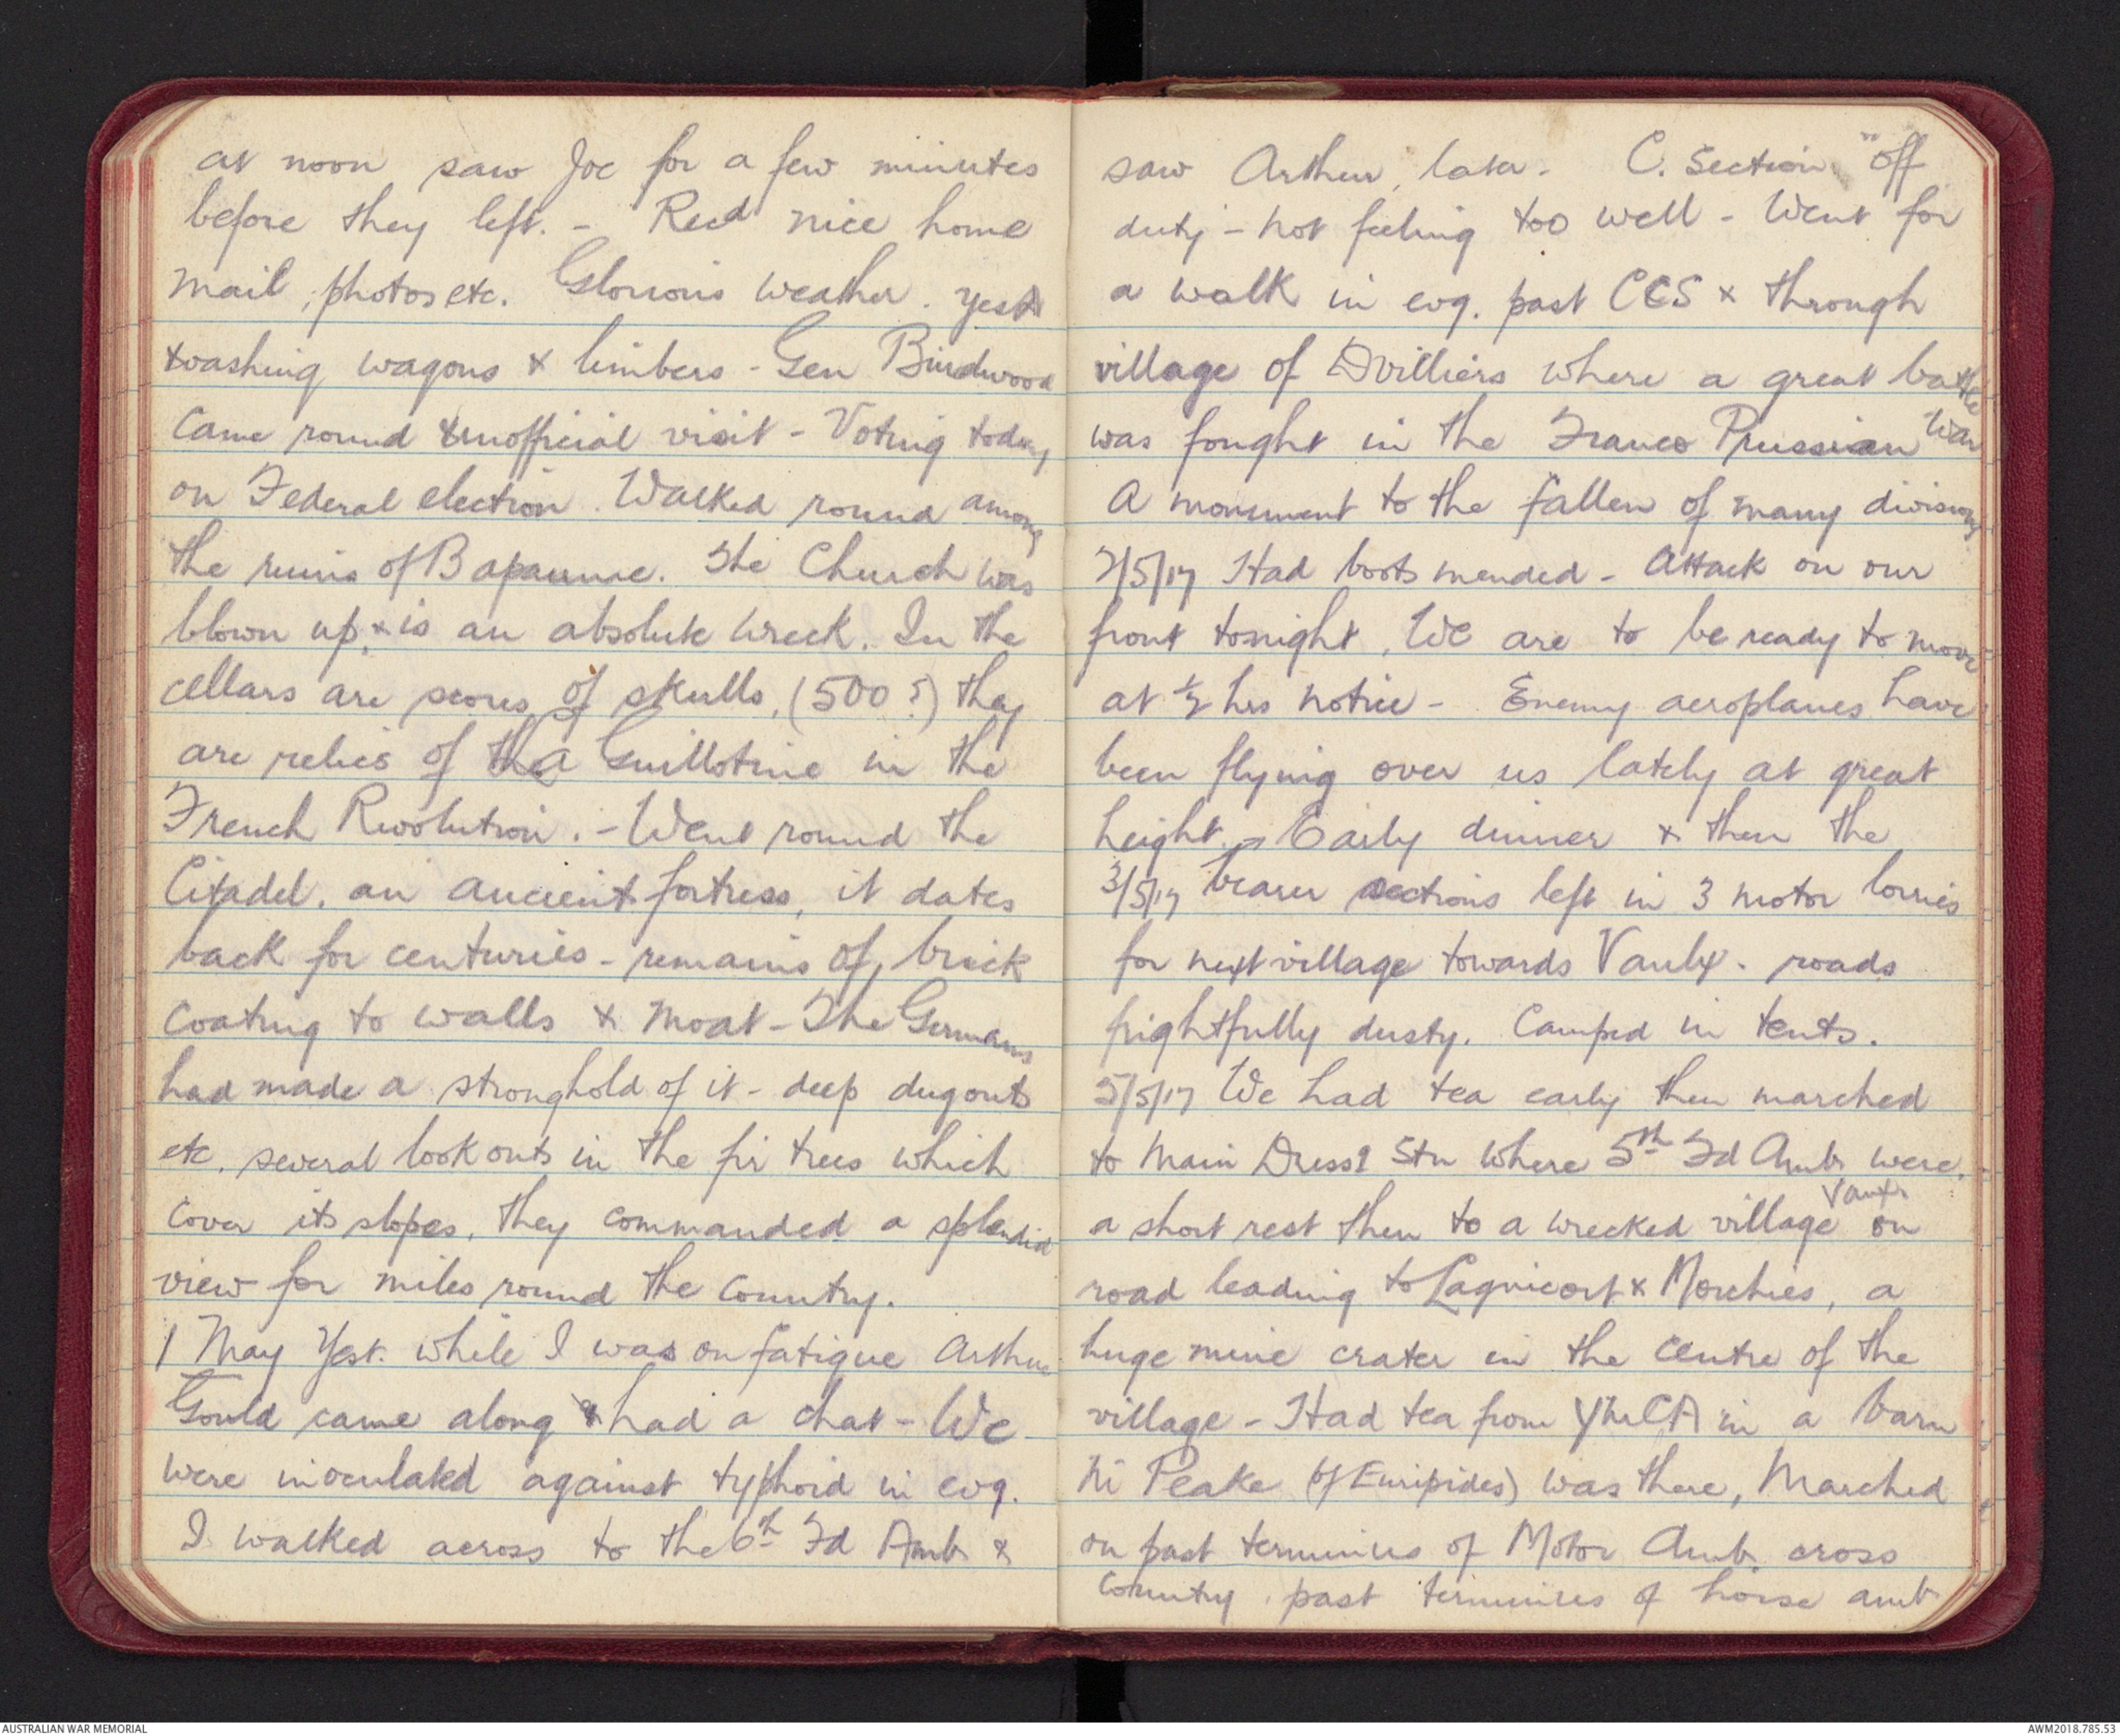 at noon saw Joe for a few minutes
before they left. - Recd nice home
mail, photos etc. Glorious weather. Yest
washing wagons & limbers - Gen Birdwood
came round & unofficial visit - Voting today
on Federal election. Walked round among
the ruins of Bapaume. The Church was
blown up, & is an absolute wreck. In the
cellars are scores of skulls, (500?) they
are relics of the Guillotine in the
French Revolution. - Went round the
Citadel, an ancient fortress, it dates
back for centuries - remains of brick
coating to walls & moat - The Germans
had made a stronghold of it - deep dugouts
etc. several lookouts in the fir trees which
cover its slopes, they commanded a splendid
view for miles round the country.
1 May Yest. while I was on fatigue Arthur
Gould came along & had a chat - We
were inoculated against typhoid in evg.
I walked across to the 6th Fd Amb &
saw Arthur, later. C. Section "off
duty - not feeling too well - Went for
a walk in evg. past CCS & through
village of Dvilliers where a great battle
was fought in the Franco Prussian War
A monument to the fallen of many divisions
2/5/17 Had boots mended - Attack on our
front tonight, We are to be ready to move
at ½ hrs notice - Enemy aeroplanes have
been flying over us lately at great
height. - Early dinner & then the
3/5/17 bearer sections left in 3 motor lorries
for next village towards Vaulx. roads
frightfully dusty. Camped in tents.
3/5/17 We had tea early then marched
to Main Dressg Stn where 5th Fd Amb were.
a short rest then to a wrecked village Vaulx on
road leading to Lagnicort & Morchies, a
huge mine crater in the centre of the
village - Had tea from YMCA in a barn
Mr Peake (of Euripides) was there, Marched
on past terminus of Motor Amb. cross
country, past terminus of horse amb
AUSTRALIAN WAR MEMORIAL
AWM2018.785.53